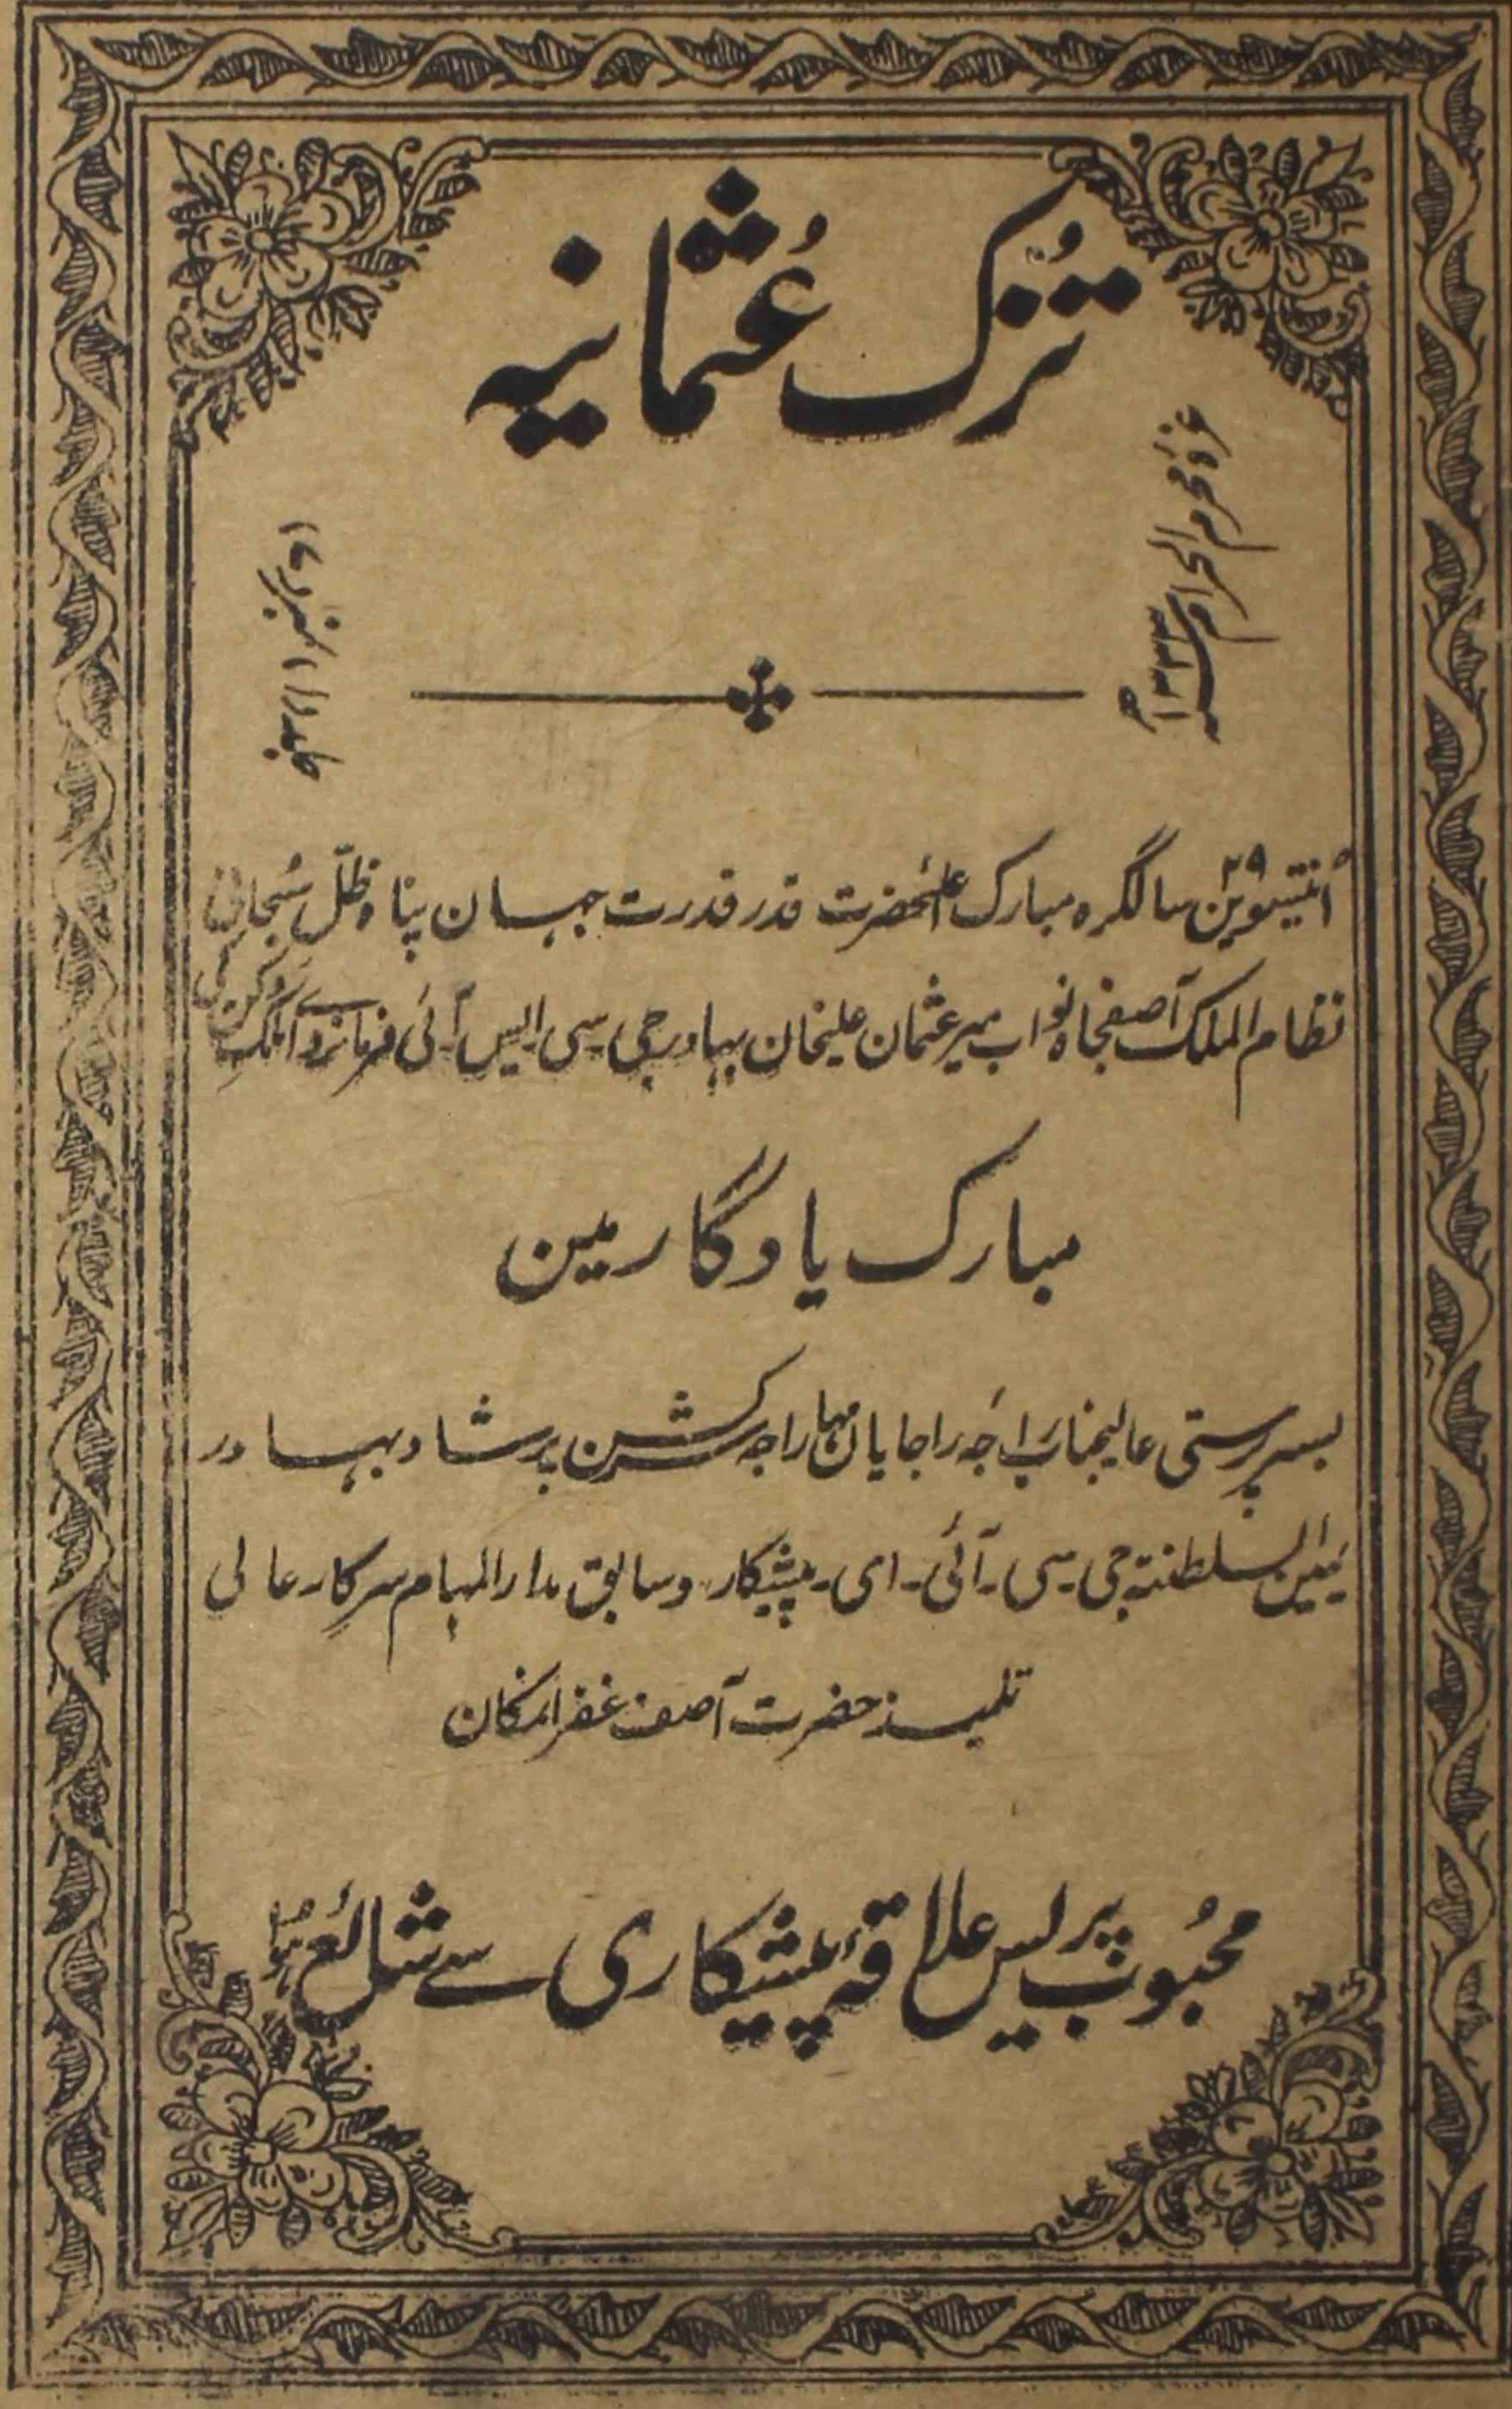 تُزک عُثمانیہ
غرۂ محرم الحرام سنہ ۱۳۳۳ھ
جلد (۱) نمبر (۱)
اُنتیسوین ۲۹ سالگرہ مبارک اعلٰحضرت قدر قدرت جہان پناہ ظلّ سُبحانی
نظام الملک آصفجاہ نواب میر عثمان علیخان بہادر جی۔سی۔ایس۔آئی فرمانروائے ملک دکن کی
مبارک یادگار مین
بسرپرستی عالیجناب راجہ راجایان مہاراجہ سرکشن پرشاد بہادر
یمین السلطنتہ جی۔سی۔آئی۔ای۔پیشکار وسابق مدارالمہام سرکارعالی
تلمیذ حضرت آصف غفرانمکان
محبُوب پریس علاقۂ پیشکاری سے شائع ہوا